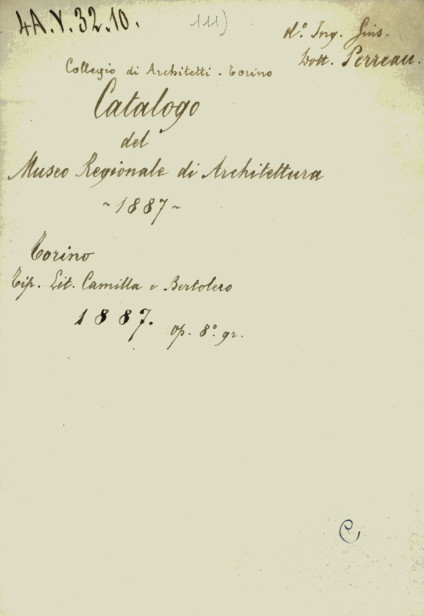 4A.V.32.10.
111)
d.° Ing. Gius.
Dott. Perreau.
Collegio di Architetti - Torino
Catalogo
del
Museo Regionale di Architettura
~ 1887 ~
Torino
Tip. Lit. Camilla e Bertolero
1887. op. 8.° gr.
C